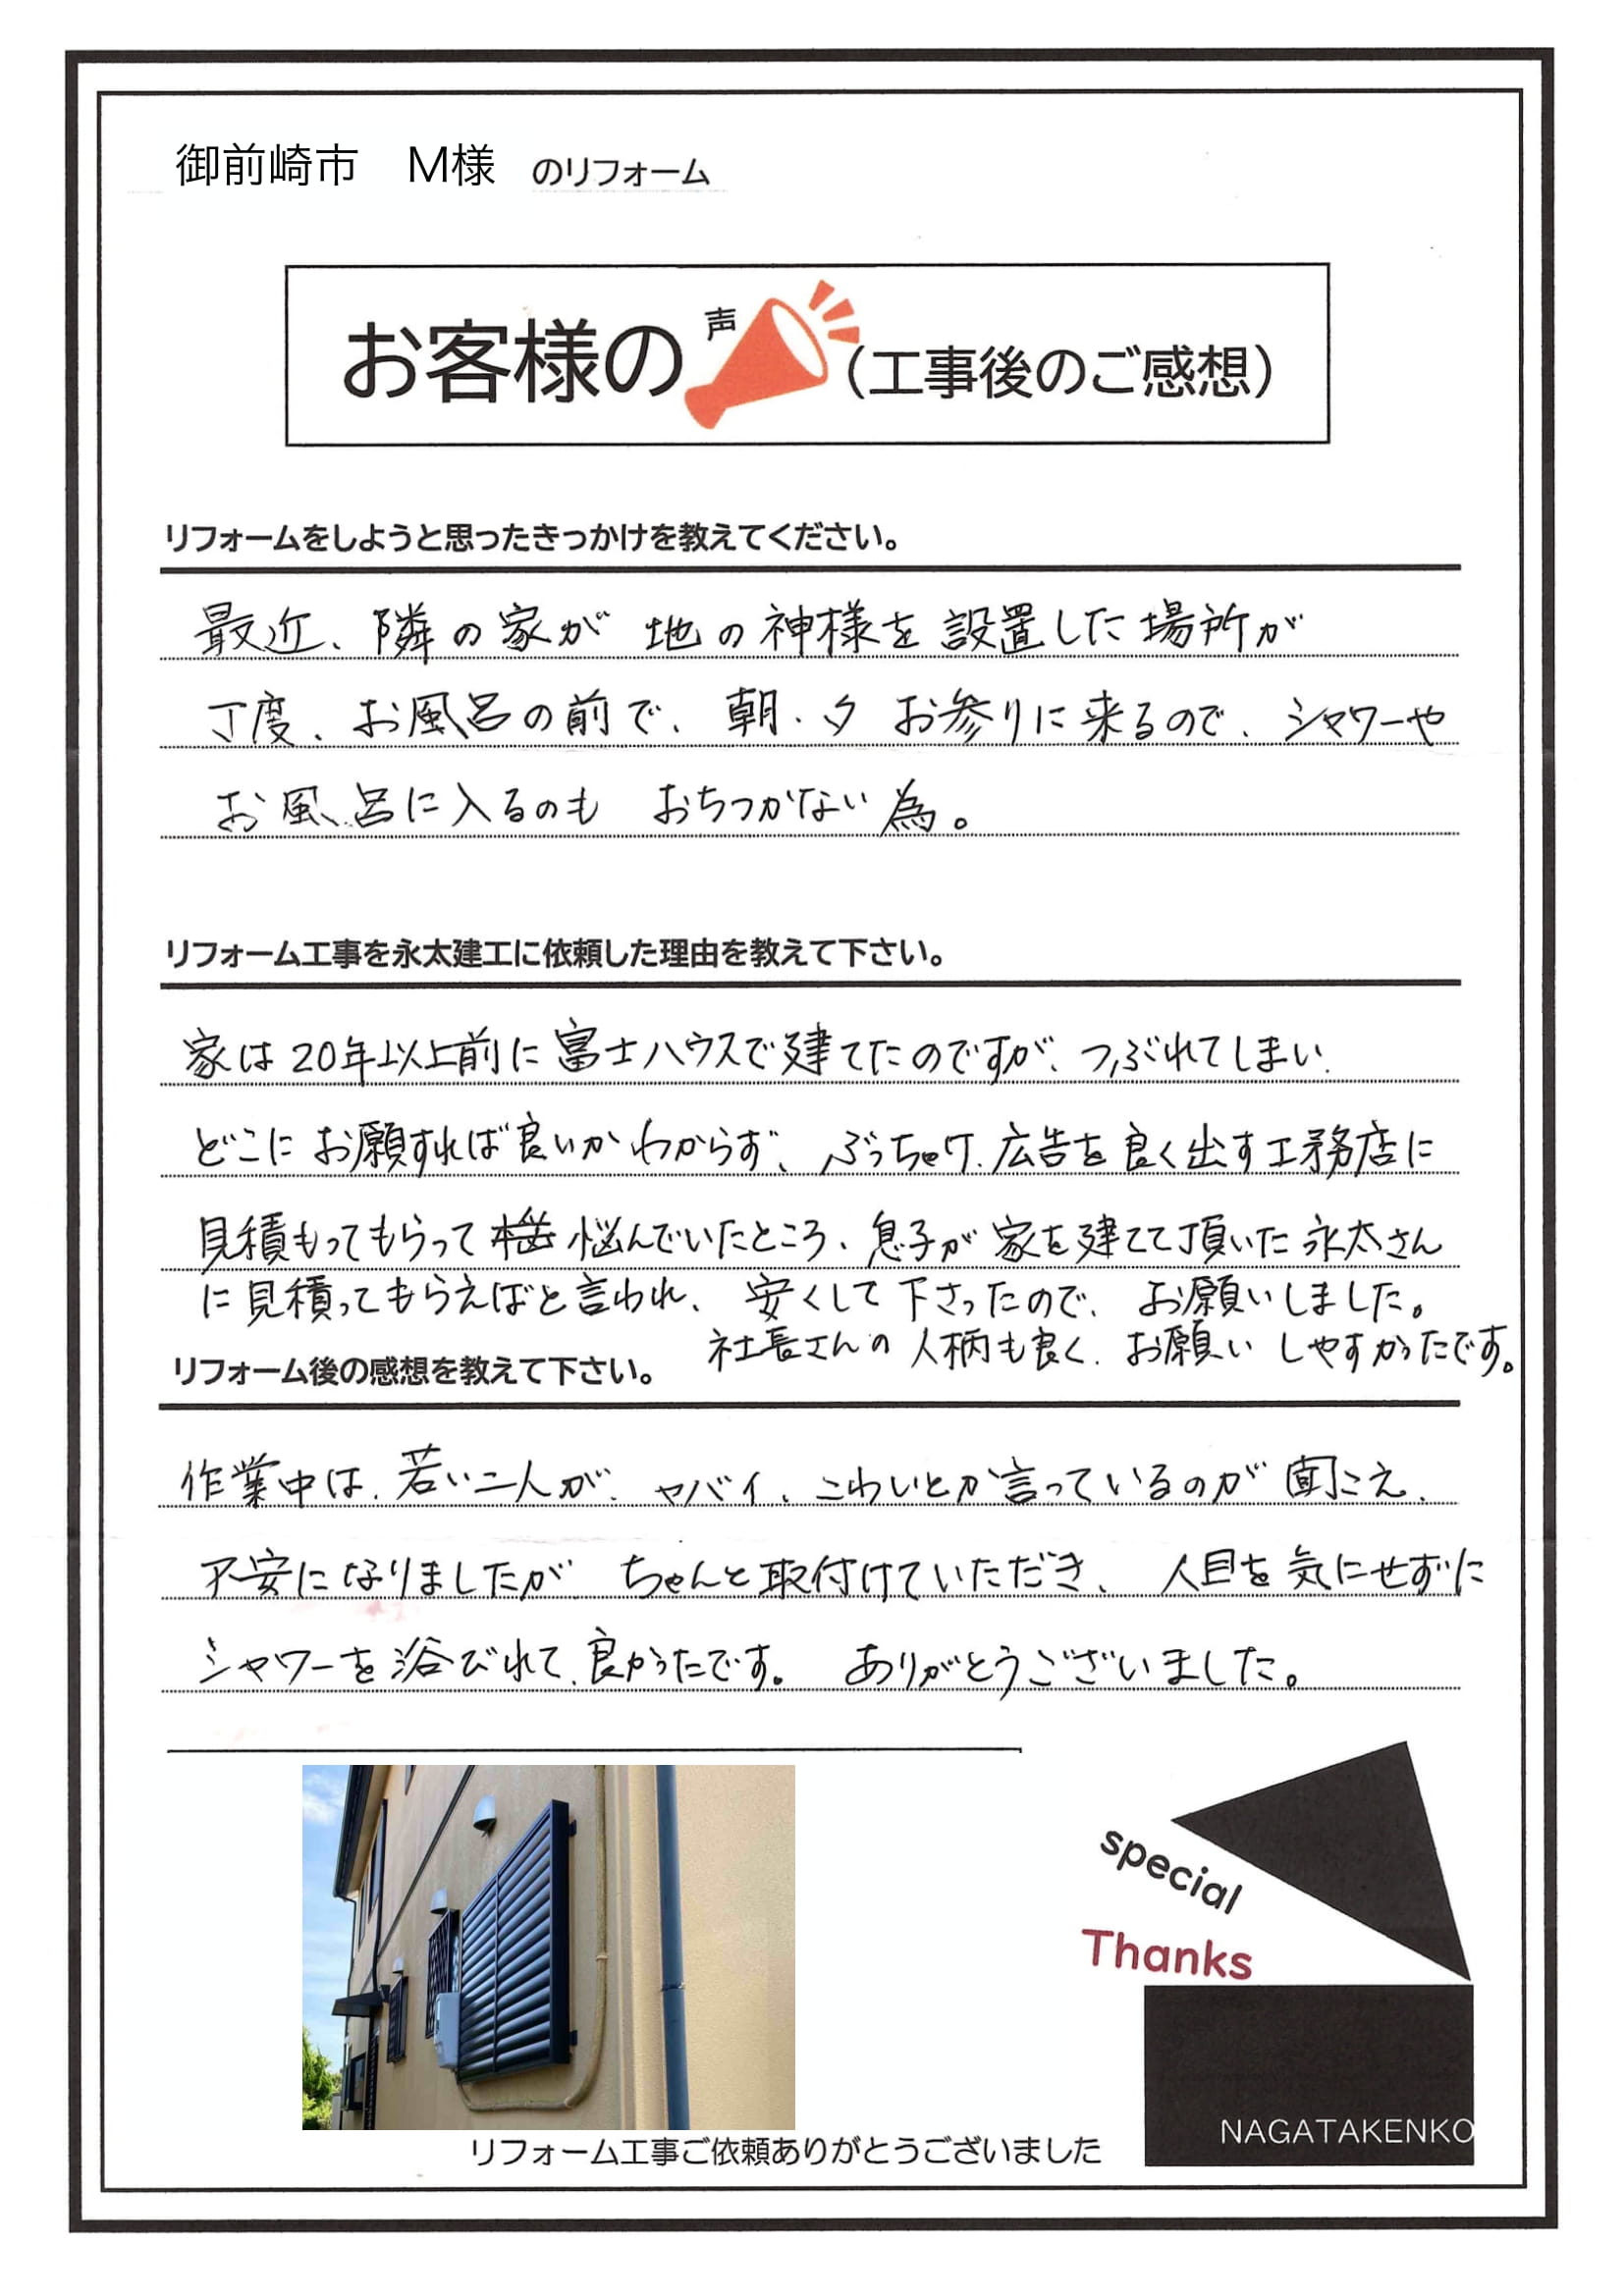 御前崎市 M様 のリフォーム
お客様の声(工事後のご感想)
リフォームをしようと思ったきっかけを教えてください。
最近、隣の家が 地の神様を設置した場所が
丁度、お風呂の前で、朝・夕 お参りに来るので、シャワーや
お風呂に入るのも おちつかない為。
リフォーム工事を永太建工に依頼した理由を教えて下さい。
家は20年以上前に富士ハウスで建てたのですが、つぶれてしまい、
どこにお願すれば良いかわからず、ぶっちゃけ、広告を良く出す工務店に
見積もってもらって 悩んでいたところ、息子が家を建てて頂いた永太さん
に見積ってもらえばと言われ、安くして下さったので、お願いしました。
社長さんの人柄も良く、お願いしやすかったです。
リフォーム後の感想を教えて下さい。
作業中は、若い二人が、ヤバイ、こわいとか言っているのが聞こえ、
不安になりましたが ちゃんと取付けていただき、人目を気にせずに
シャワーを浴びれて、良かったです。 ありがとうございました。
special
Thanks
NAGATAKENKO
リフォーム工事ご依頼ありがとうございました